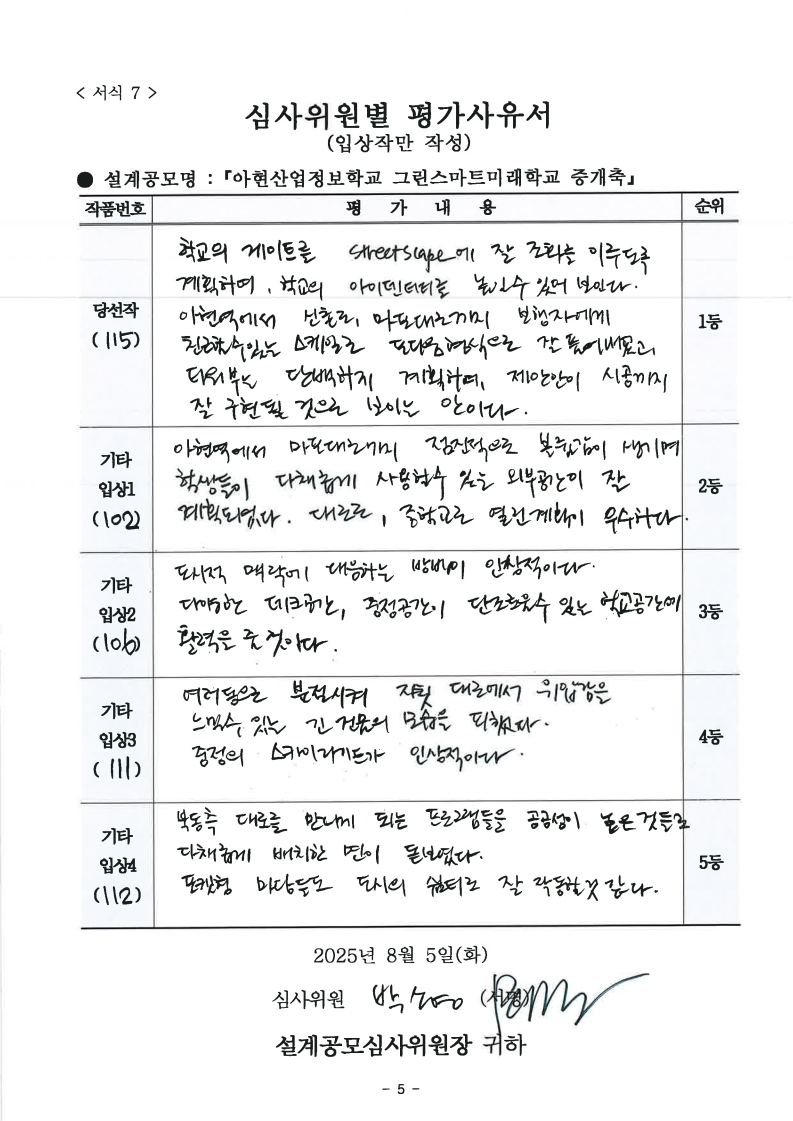 < 서식 7 >
심사위원별 평가사유서
(입상작만 작성)
● 설계공모명 : 『아현산업정보학교 그린스마트미래학교 증개축』
작품번호 평 가 내 용 순위
당선작
(115)
학교의 게이트를 streetscape에 잘 조화를 이루도록
계획하며, 학교의 아이덴티티를 높일수 있어 보인다.
아현역에서 신촌로, 마포대로까지 보행자에게
친근할수있는 스케일로 잘 풀어내었고,
단백하지 계획하며, 제안안이 시공까지
잘 구현될 것으로 보이는 안이다.
1등
기타
입상1
(102)
아현역에서 마포대로까지 점진적으로 생기며
학생들이 다채롭게 사용할수 있는 외부공간이 잘
계획되었다. 대로로, 중학교로 열린계획이 우수하다.
2등
기타
입상2
(106)
도시적 맥락에 대응하는 방법이 인상적이다.
다양한 데크공간, 중정공간이 단조로울수 있는 학교공간에
활력을 줄것이다.
3등
기타
입상3
(111)
여러동으로 분절시켜 자칫 대로에서 위압감을
느낄수 있는 긴 건물의 모습을 피했다.
중정의 스카이라기드가 인상적이다.
4등
기타
입상4
(112)
북동측 대로를 만나게 되는 프로그램들을 공공성이 높은것들로
다채롭게 배치한 면이 돋보였다.
포켓형 마당들도 도시의 쉼터로 잘 작동할것 같다.
5등
2025년 8월 5일(화)
심사위원 (서명)
설계공모심사위원장 귀하
- 5 -